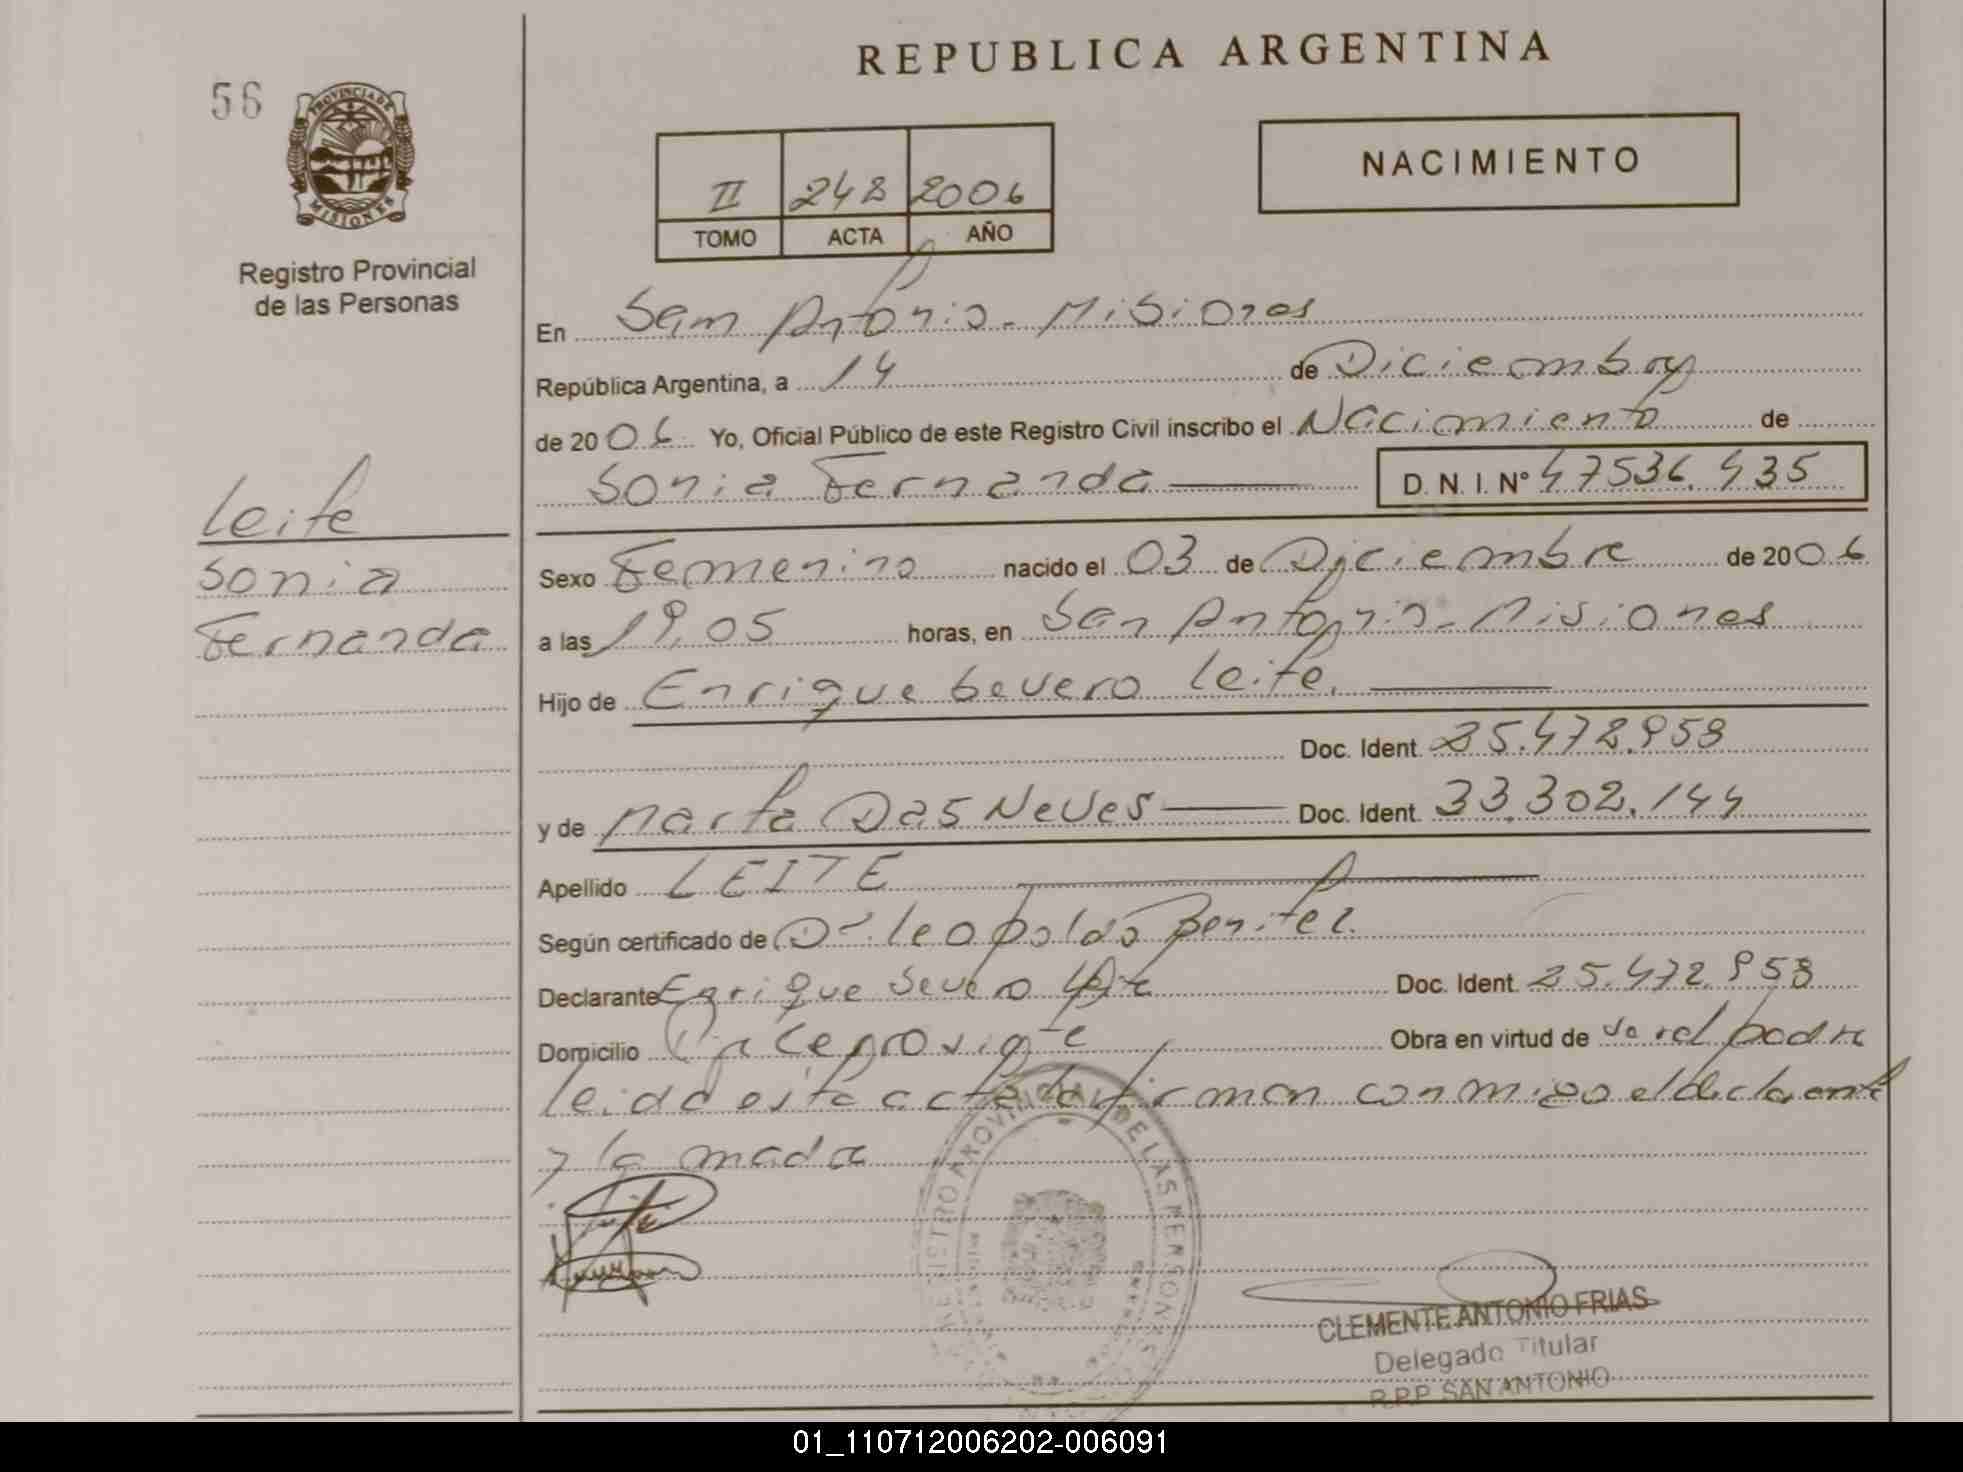 REPUBLICA ARGENTINA
56
PROVINCIA DE
MISIONES
Registro Provincial
de las Personas
II 248 2006
TOMO ACTA AÑO
NACIMIENTO
En San Antonio - Misiones
República Argentina, a 14 de Diciembre
de 2006 Yo, Oficial Público de este Registro Civil inscribo el Nacimiento de
Sonia Fernanda D. N. I. Nº 47536.435
Leite
Sonia
Fernanda
Sexo Femenino nacido el 03 de Diciembre de 2006
a las 19,05 horas, en San Antonio - Misiones
Hijo de Enrique Severo Leite.
Doc. Ident. 25.472.958
y de Marta Das Neves Doc. Ident. 33.302.144
Apellido LEITE
Según certificado de Dr. Leopoldo Benitez.
Declarante Enrique Severo Leite Doc. Ident. 25.472.958
Domicilio Obra en virtud de padre
leida esta acta firman conmigo el declarante
y la madre
REGISTRO PROVINCIAL DE LAS PERSONAS
CLEMENTE ANTONIO FRIAS
Delegado Titular
R.P.P. SAN ANTONIO
01_110712006202-006091